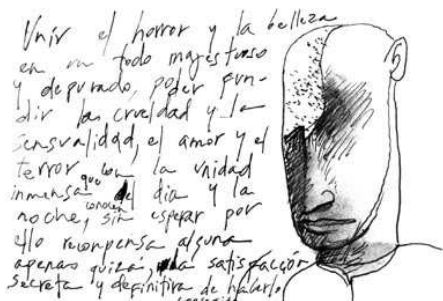 Unir el horror y la belleza
en un todo majestuoso
y depurado, poder fun-
dir la crueldad y la
sensualidad, el amor y el
terror con la unidad
inmensa que conocen del dia y la
noche, sin esperar por
ello recompensa alguna
apenas quizá, la satisfacción
secreta y definitiva de haberlo